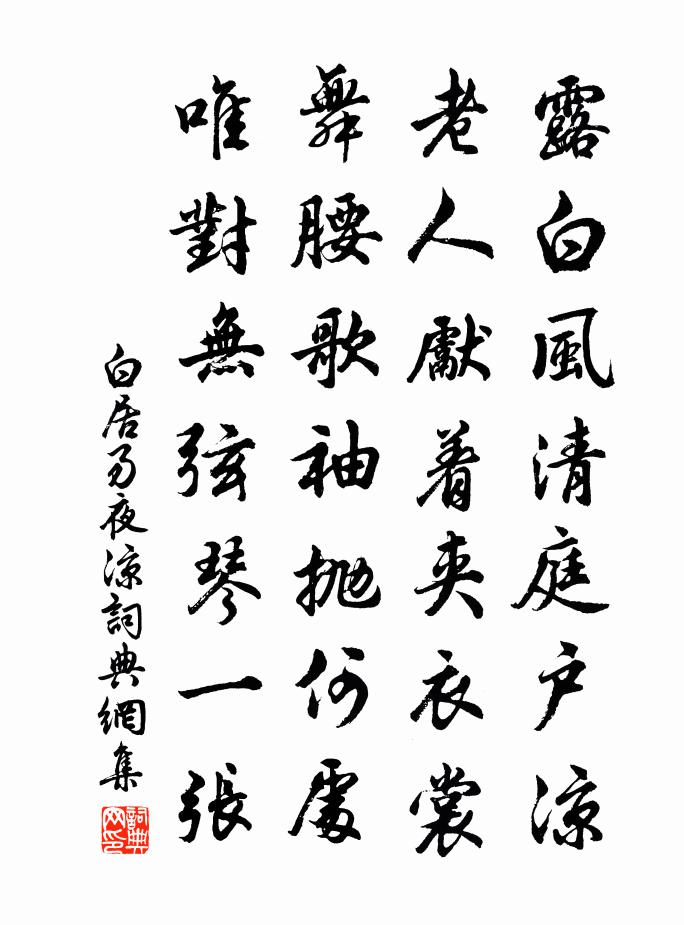 露白風清庭户涼
老人獻着夾衣裳
舞腰歌袖抛何處
唯對無弦琴一張
白居易夜涼詞典網集
詞典网印